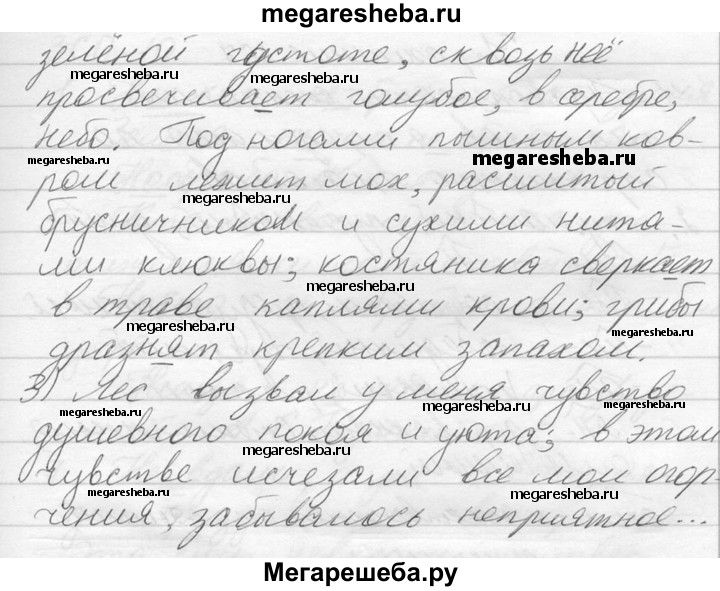 megaresheba.ru
зелёной густоте, сквозь неё
megaresheba.ru
megaresheba.ru
просвечивает голубое, в серебре,
megaresheba.ru
небо. Под ногами пышным ков-
megaresheba.ru
megaresheba.ru
ром лежит мох, расшитый
megaresheba.ru
брусничником и сухими нитя-
ми клюквы; костяника сверкает
megaresheba.ru
в траве каплями крови; грибы
megaresheba.ru
megaresheba.ru
дразнят крепким запахом.
3) Лес вызвал у меня чувство
megaresheba.ru
megaresheba.ru
megaresheba.ru
душевного покоя и уюта; в этом
megaresheba.ru
чувстве исчезали все мои огор-
megaresheba.ru
megaresheba.ru
чения, забывалось неприятное...
Мегарешеба.ру